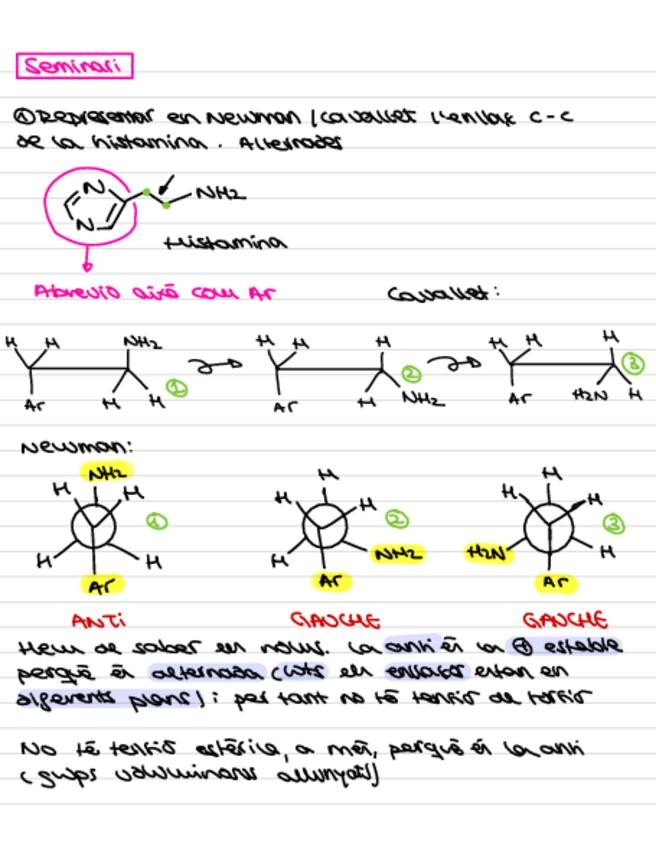 Seminari
① Representar en Newman / Cavallet l'enllaç C-C
de la histamina. Alternades
N
N
NH2
Histamina
Abrevio això com Ar
Cavallet:
H H NH2 Ar H H ①
H H H Ar H NH2 ②
H H H Ar H2N H ③
Newman:
NH2 H H H H Ar ①
H H H H NH2 Ar ②
H H H H2N H Ar ③
ANTi
GAUCHE
GAUCHE
Hem de saber els noms. La anti és la ⊕ estable
perquè és alternada (tots els enllaços estan en
diferents plans) i per tant no té tensió de torsió
No té tensió estèrica, a més, perquè és la anti
(grups voluminosos allunyats)